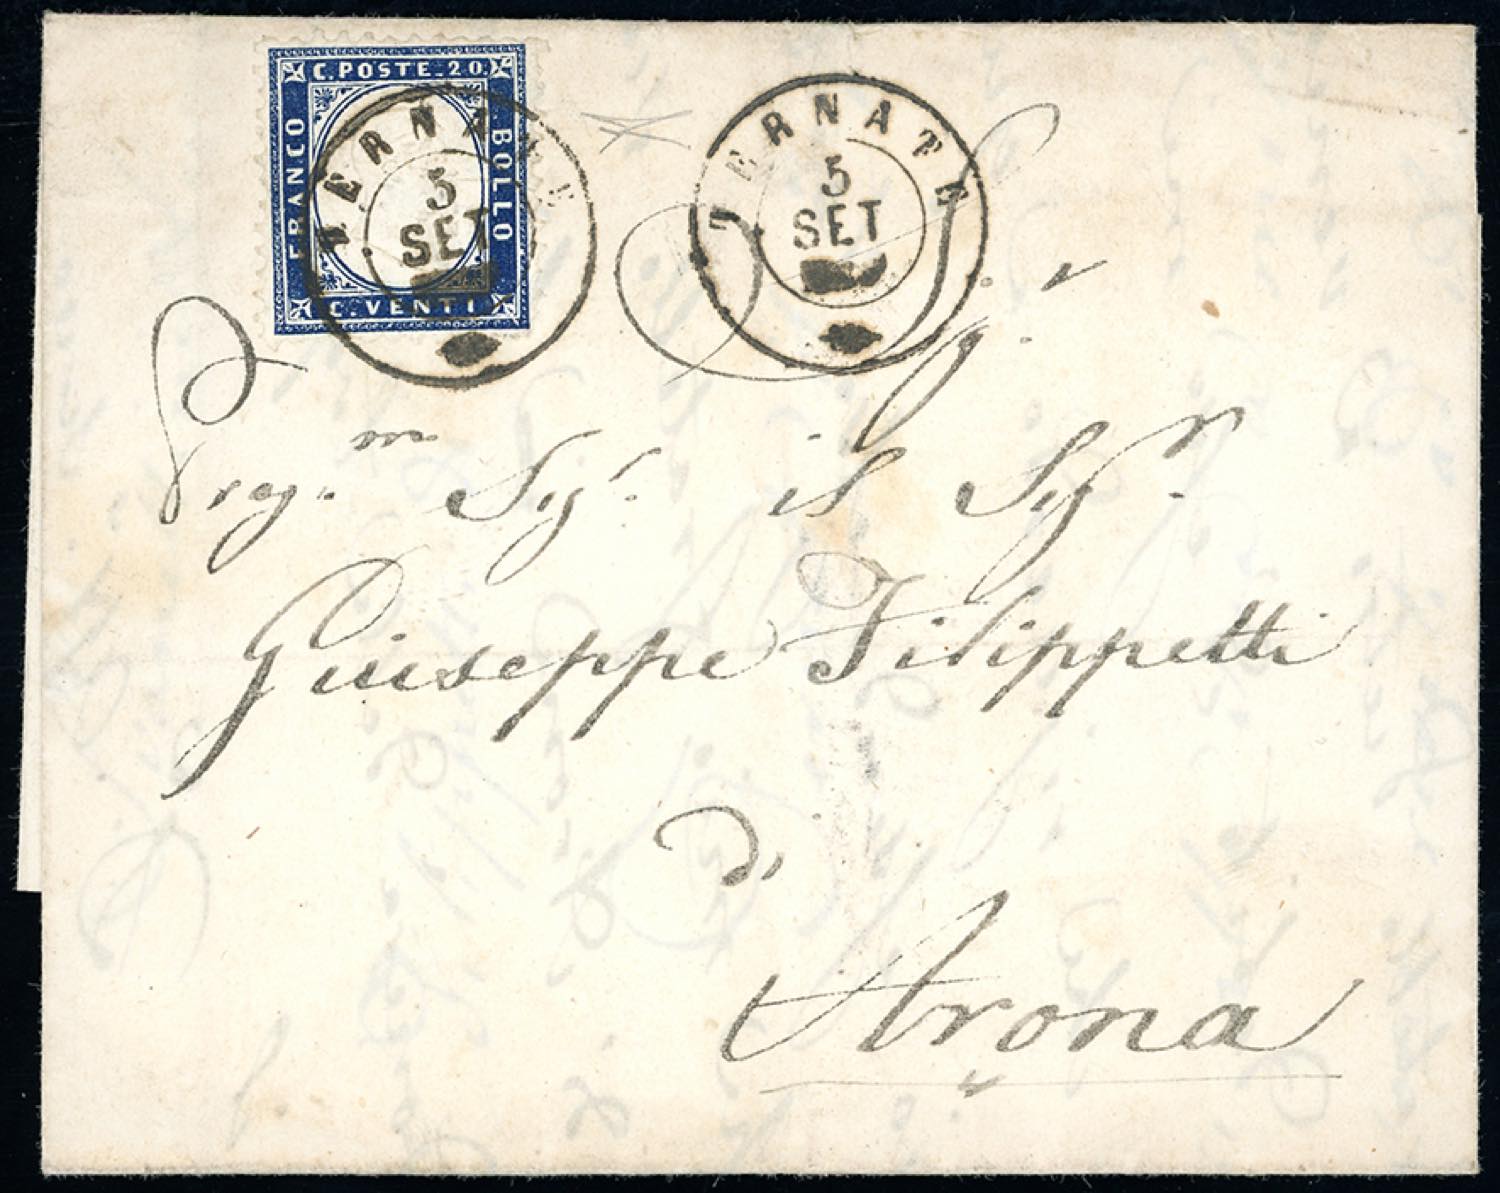 C. POSTE. 20.
FRANCO
BOLLO
C. VENTI
TERNATE
5
SET
TERNATE
5
SET
Preg.mo Sig.r il Sig.r
Giuseppe Filippetti
di
Arona